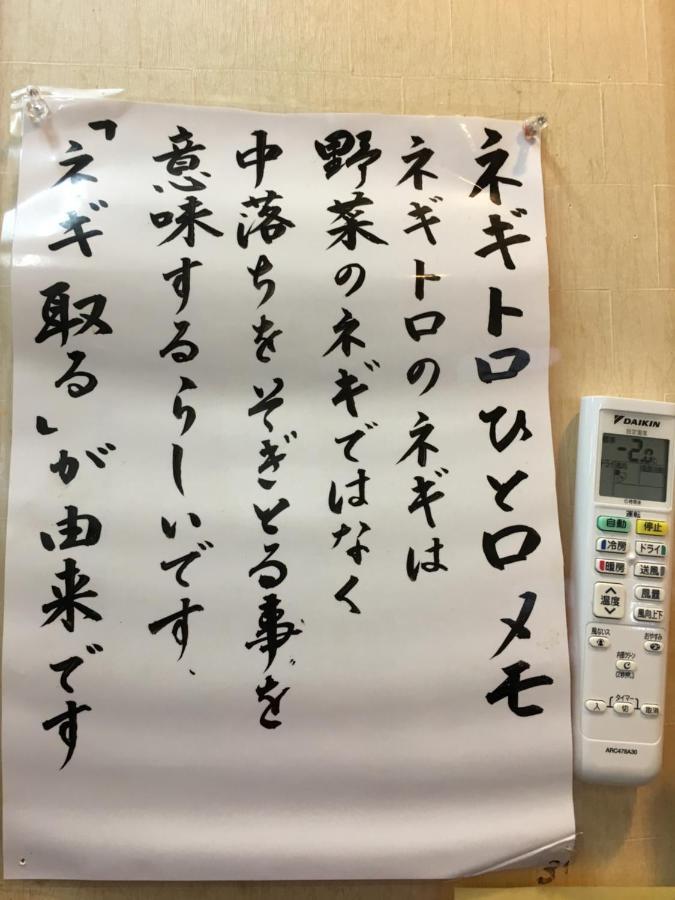 ネギトロひと口メモ
ネギトロのネギは
野菜のネギではなく
中落ちをそぎとる事を
意味するらしいです、
「ネギ取る」が由来です
DAIKIN
設定温度
-2.0
℃
ドライ
6時間後
運転
自動
停止
冷房
ドライ
暖房
送風
温度
風量
風向上下
風ないス
おやすみ
内部クリーン
(2秒押し)
タイマー
入
切
取消
ARC478A30